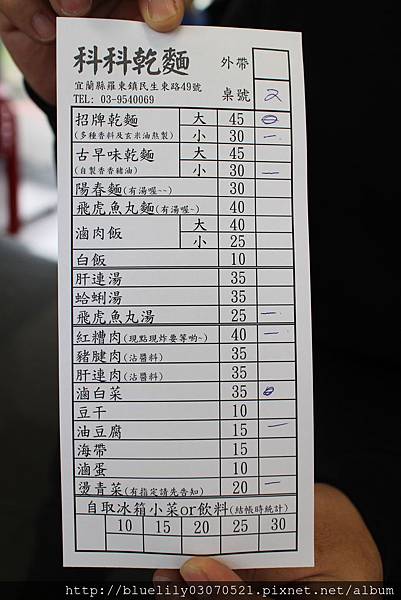 科科乾麵
宜蘭縣羅東鎮民生東路49號
TEL: 03-9540069
外帶
桌號 2
招牌乾麵 大 45
(多種香料及玄米油熬製) 小 30 一
古早味乾麵 大 45
(自製香香豬油) 小 30 一
陽春麵(有湯喔~~) 30
飛虎魚丸麵(有湯喔~) 40
滷肉飯 大 40
小 25
白飯 10
肝連湯 35
蛤蜊湯 35
飛虎魚丸湯 25 一
紅糟肉(現點現炸要等喲~) 40 一
豬腱肉(沾醬料) 35
肝連肉(沾醬料) 35
滷白菜 35
豆干 10
油豆腐 15 一
海帶 15
滷蛋 10
燙青菜(有指定請先告知) 20 一
自取冰箱小菜or飲料(結帳時統計)
10 15 20 25 30
http://bluelily03070521.pixnet.net/album